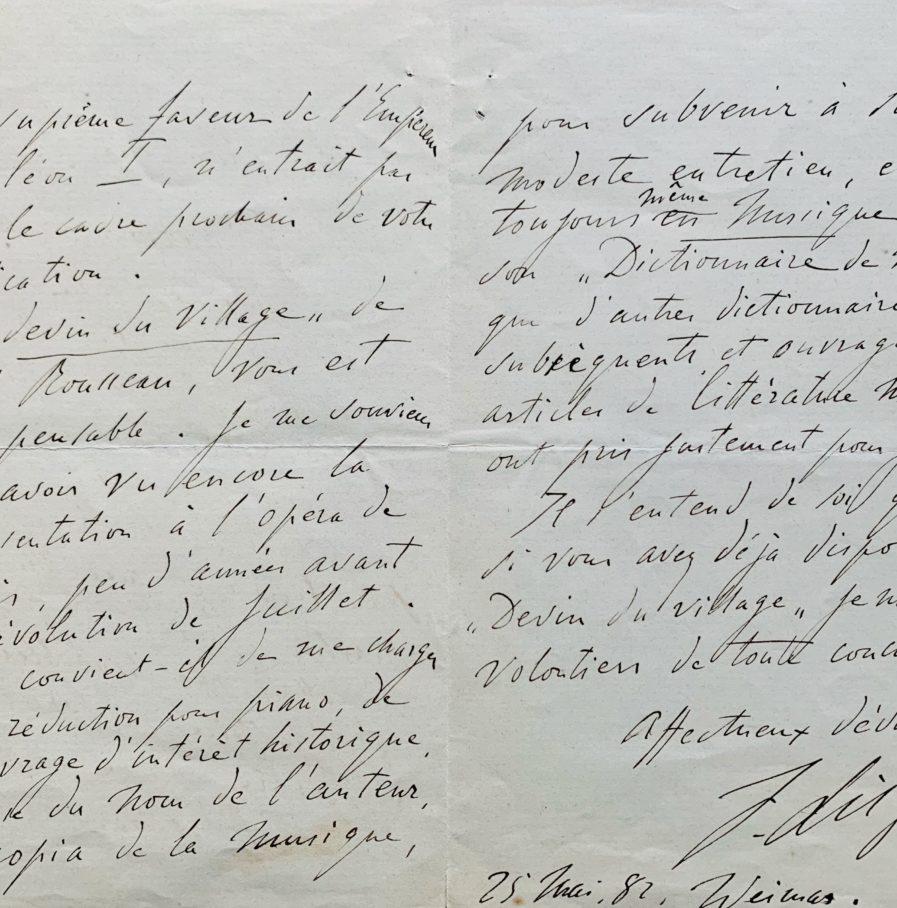 suprême faveur de l'Empereur
léon I, n'entrait pas
le cadre prochain de votre
ication.
devin du Village„ de
Rousseau, vous est
pensable. Je me souviens
avoir vu encore la
sentation à l'opéra de
peu d'années avant
évolution de Juillet.
convient-il de me charger
réduction pour piano, de
vrage d'intérêt historique,
du nom de l'auteur,
copia de la Musique,
pour subvenir à
modeste entretien, e
même
toujours en Musique
son „Dictionnaire de
que d'autres dictionnaire
subséquents et ouvrag
articles de littérature
ont pris justement pour
Il s'entend de soi q
si vous avez déjà dispo
„Devin du village„ je
volontiers de toute conc
Affectueux dévo
F. Lis
25 Mai, 82, Weimar.